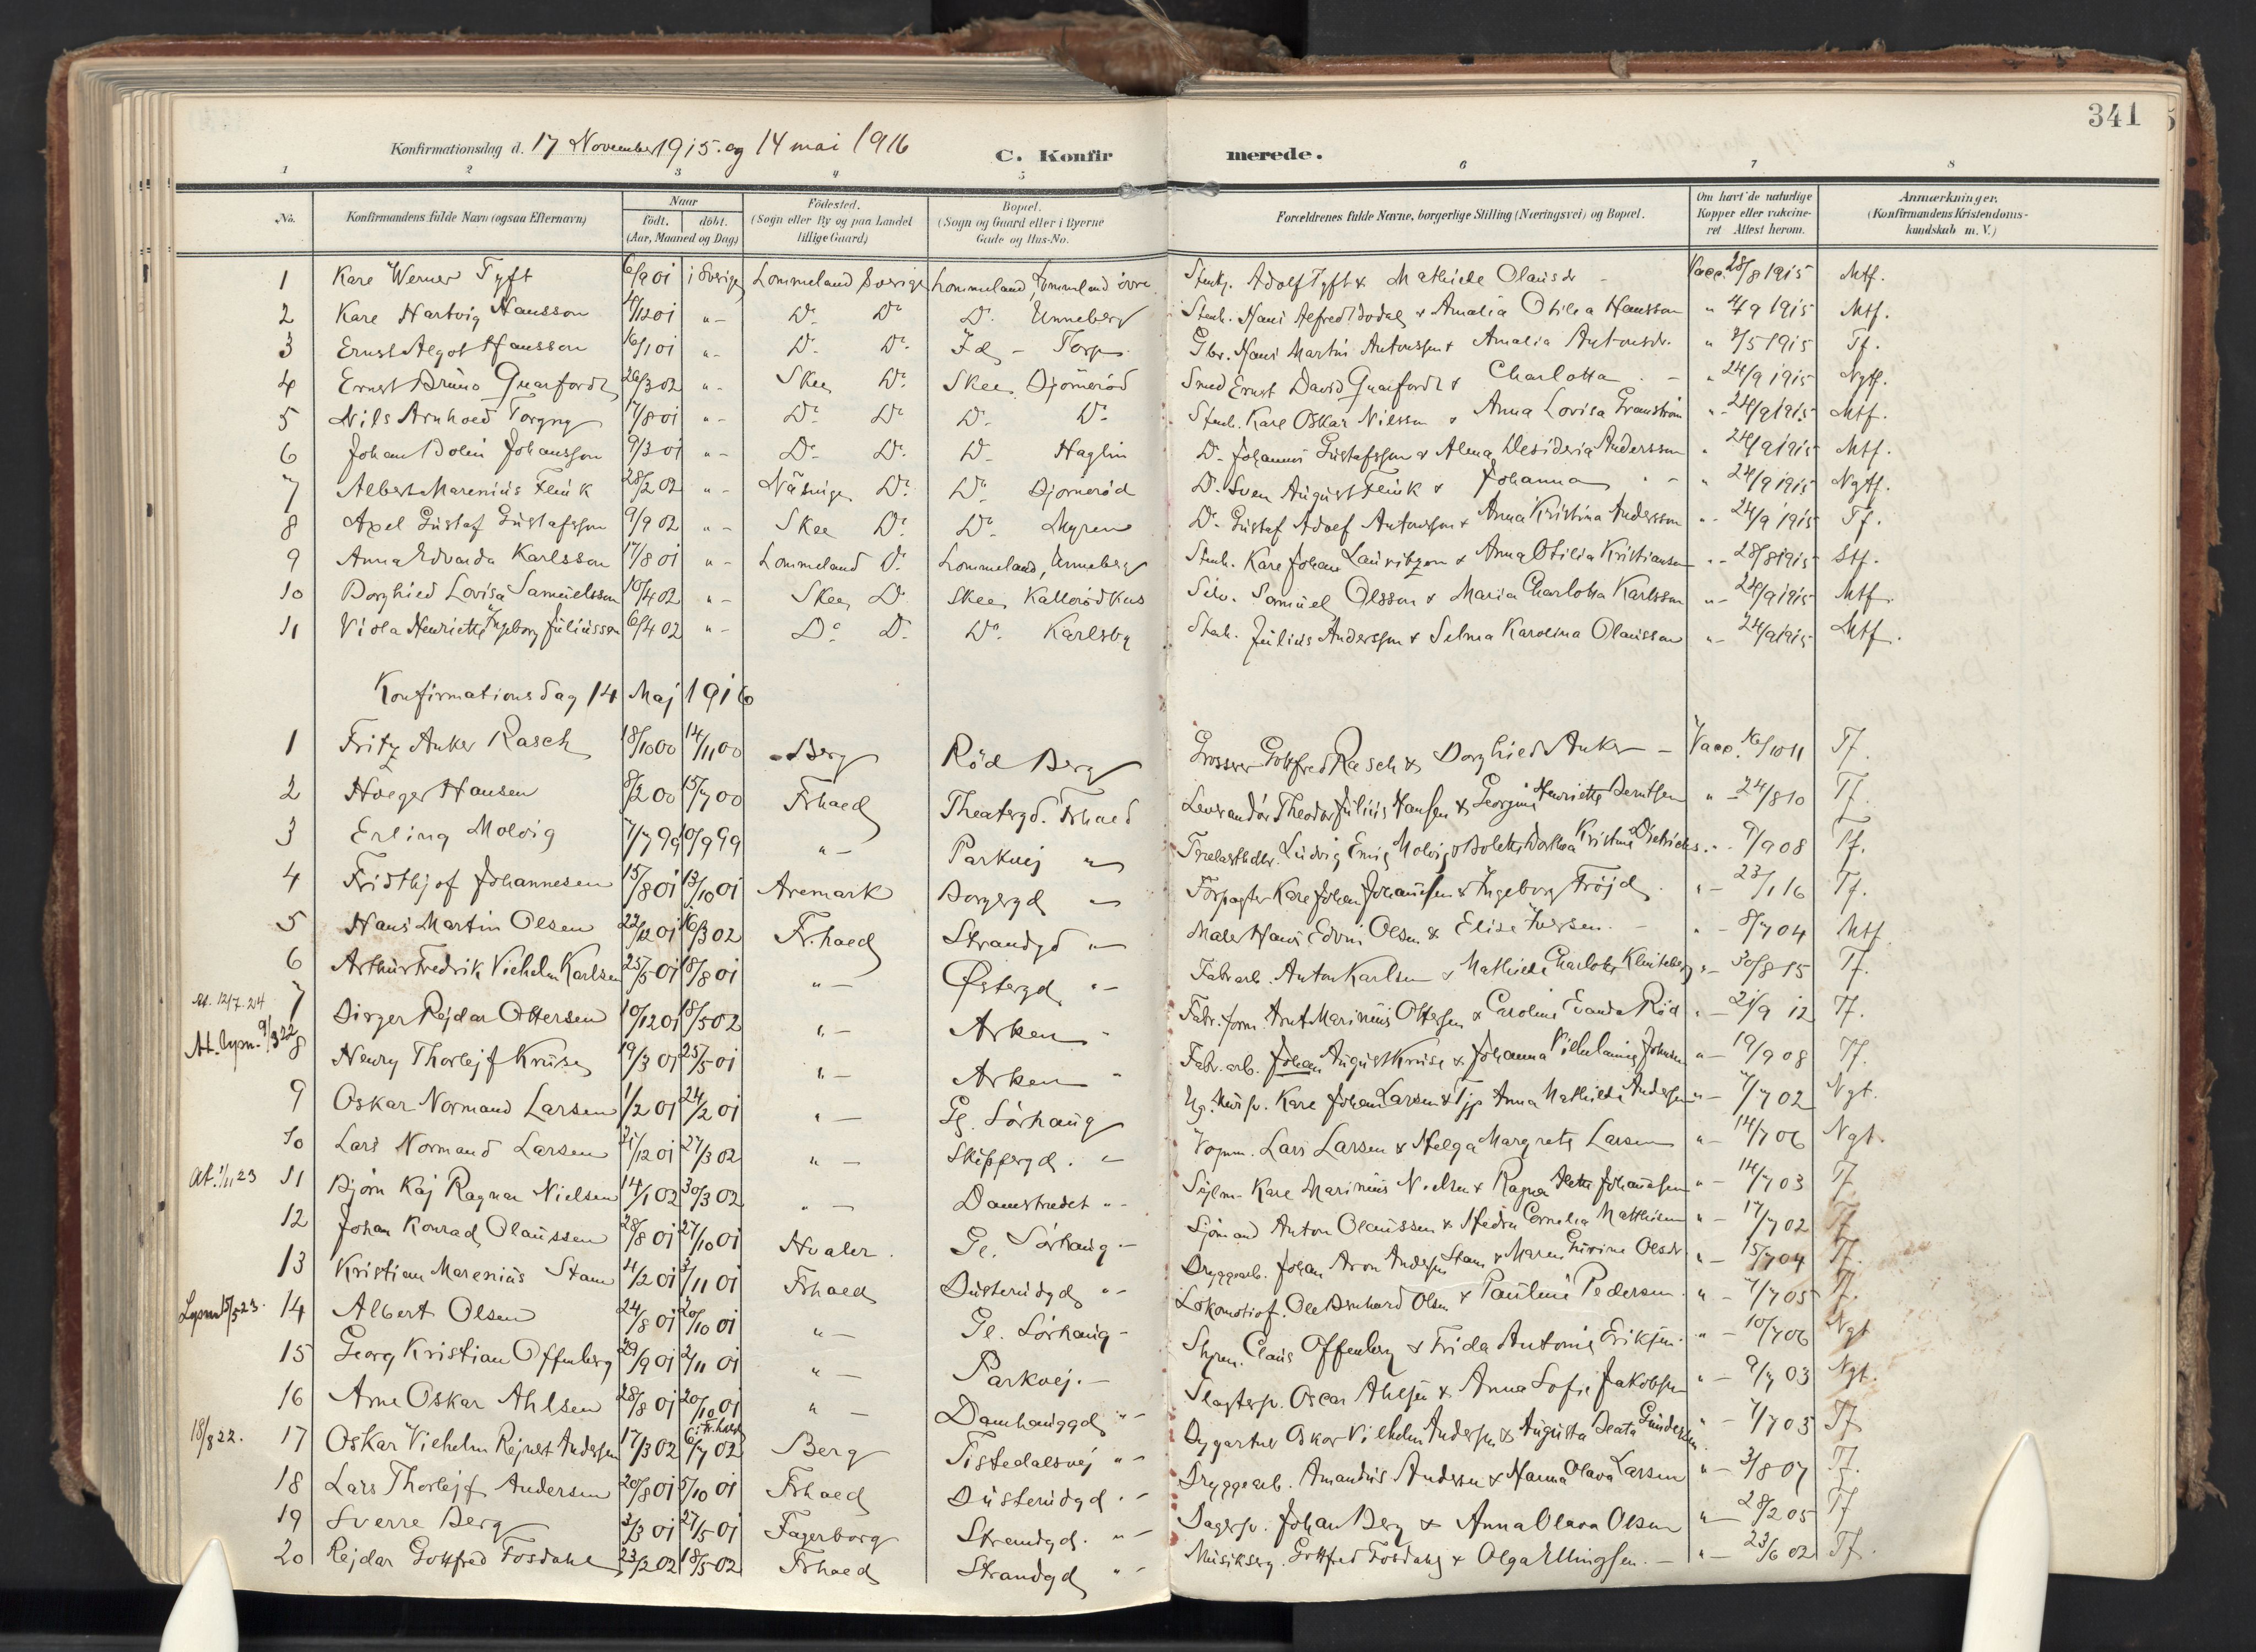 341
Konfirmationsdag d. 17 November 1915. og 14 mai 1916 C. Konfirmerede.
1 2 3 4 5 6 7 8
No. Konfirmandens fulde Navn (ogsaa Efternavn) Naar födt. döbt. (Aar, Maaned og Dag) Födested. (Sogn eller By og paa Landet tillige Gaard) Bopæl. (Sogn og Gaard eller i Byerne Gade og Hus-No. Forældrenes fulde Navne, borgerlige Stilling (Næringsvei) og Bopæl. Om havt de naturlige Kopper eller vakcineret Attest herom. Anmærkninger. (Konfirmandens Kristendomskundskab m. V.)
1 Karl Werner Tyft 6/9 01 i Sverige Lommeland Sverige Lommeland, Lommeland övre Stenh. Adolf Tyft & Mathilde Olausdr - Vacc. 28/8 1915 Mtf.
2 Karl Hartvig Hansson 4/12 01 " - Do Do Do Unneberg Stenh. Hans Alfred & Amalia Otilia Hansson " 4/9 1915 Mtf.
3 Ernst Algot Hansson 16/1 01 " - Do Do Id - Torp Gbr. Hans Martin Antonsson & Amalia Antonsdr. " 3/5 1915 Tf.
4 Ernst Bruno Quarfordt 26/3 02 " - Skee Do Skee Björneröd Smed Ernst David Quarfordt & Charlotta - " 24/9 1915 Ngtf.
5 Nils Arnhold Torgny 17/8 01 " - Do Do Do Do Stenh. Karl Oskar Nilsson & Anna Lovisa Granström " - 24/9 1915 Mtf.
6 Johan Bolin Johansson 9/3 01 " - Do Do Do Haglin Do Johannes Gustafsson & Alma Desideria Andersson " 24/9 1915 Mtf.
7 Albert Marenius Flink 28/2 02 " - Näsinge Do Do Björneröd Do Sven August Flink & Johanna " - " 24/9 1915 Ngtf.
8 Axel Gustaf Gustafsson 9/9 02 " - Skee Do Do Myren Do Gustaf Adolf Antonsson & Anna Kristina Andersson " - 24/9 1915 Tf.
9 Anna Edvarda Karlsson 17/8 01 " - Lommeland Do Lommeland, Unneberg Stenh. Karl Johan Lauritzson & Anna Otilia Kristiansen " - 28/8 1915 Stf.
10 Borghild Lovisa Samuelsson 10/4 02 " - Skee Do Skee Kalleröd Kas Samuel Olsson & Maria Charlotta Karlsson " - 24/9 1915 Mtf.
11 Viola Henriette Ingeborg Juliusson 6/4 02 " - Do Do Do Karlsby Stenh. Julius Andersson & Selma Karolina Olausson " - 24/9 1915 Mtf.
Konfirmationsdag 14 Maj 1916
1 Fritz Anker Rasch 18/10 00 14/11 00 Berg Röd Berg Grosserer Gottfred Rasch & Borghild Anker - Vacc. 16/10 11 Tf.
2 Holger Hansen 8/2 00 15/7 00 Frhald Theatergd. Frhald Leverandör Theodor Julius Hansen & Georgine Henriette Berntsen " - 24/8 10 Tf.
3 Erling Molvig 7/7 99 10/9 99 " - Parkvej " Trælasthdlr. Ludvig Emil Molvig & Bolette Dorthea Kristine Dietrichs " - 9/9 08 Tf.
4 Fridthjof Johannesen 15/8 01 13/10 01 Aremark Borgergd " Forpagter Karl Johan Johannesen & Ingeborg Fröjd " - 23/1 16 Tf.
5 Hans Martin Olsen 22/12 01 16/3 02 Fr.hald Strandgd " Maler Hans Edvin Olsen & Elise Iversen. - " - 8/7 04 Mtf
6 Arthur Fredrik Vilhelm Karlsen 25/5 01 18/8 01 " - Östergd " - Fabr.arb. Anton Karlsen & Mathilde Charlotte Klenteberg " - 30/8 15 Tf.
At. 12/7. 24 7 Birger Rejdar Ottersen 10/12 01 18/5 02 " - Arken - Fabr.form. Arnt Marinius Ottersen & Caroline Evanda Röd " - 21/9 12 Tf.
At. lysn. 9/3 22 8 Henry Thorlejf Kruse 19/3 01 25/5 01 " - Arken - Fabr. arb. Johan August Kruse & Johanna Vilhelmine Johnsen " - 19/9 08 Tf.
9 Oskar Normand Larsen 1/2 01 24/2 01 " - Gl. Sörhaug Ug. Karl Johan Larsen & Tjp Anna Mathilde Andersen " - 7/7 02 Ngt.
10 Lars Normand Larsen 21/12 01 27/3 02 " - Skippergd. " Vognm. Lars Larsen & Helga Margrete Larsen " - 14/7 06 Ngt.
At. 1/11 23 11 Björn Kaj Ragnar Nielsen 14/1 02 30/3 02 " - Damstredet " - Sejlm. Karl Marinius Nielsen & Ragna Johannesen " - 14/7 03 Tf
12 Johan Konrad Olaussen 28/8 01 27/10 01 Hvaler. Gl. Sörhaug - Sjömand Anton Olaussen & Hedvig Cornelia Matthisen " - 17/7 02 Tf
13 Kristian Marenius Stam 4/2 01 3/11 01 Frhald Busterudgd " - Bryggearb. Johan Aron Andersen Stam & Maren Gurine Olsdr. " - 15/7 04 Tf.
Lysn 15/5 23. 14 Albert Olsen 24/8 01 20/10 01 " - Gl. Sörhaug - Lokomotivf. Ole Bernhard Olsen & Pauline Pedersen. " - 7/7 05 Tf.
15 Georg Kristian Offenberg 29/9 01 2/11 01 " - Parkvej. - Styrm. Claus Offenberg & Frida Antonie Eriksen. " - 10/7 06 Ngt
16 Arne Oskar Ahlsen 28/8 01 20/10 01 " - Damhauggd " - Slagtersv. Oscar Ahlsen & Anna Sofie Jakobsen " - 9/7 03 Ngt.
18/8 22. 17 Oskar Vilhelm Rejnert Andersen 17/3 02 i Fr.hald 6/7 02 Berg Tistedalsvej " - Bygartner Oskar Vilhelm Andersen & Augusta Beata Gundersen " - 7/7 03 Tf
18 Lars Thorlejf Andersen 20/8 01 5/10 01 Frhald Busterudgd. " - Bryggearb. Amandus Andersen & Hanna Olava Larsen " - 3/8 07 Tf.
19 Sverre Berg 3/3 01 27/5 01 Fagerborg Strandgd. " - Bagersv. Johan Berg & Anna Olava Olsen " - 28/2 05 Tf
20 Rejdar Gottfred Fosdahl 23/2 02 18/5 02 Frhald Strandgd " - Musikserg. Gottfred Fosdahl & Olga Ellingsen. - " - 23/6 02 Tf.